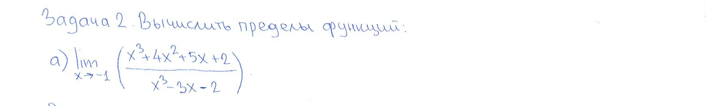 Задача 2. Вычислить пределы функций:
а) lim x→-1 (x³+4x²+5x+2 / x³-3x-2)